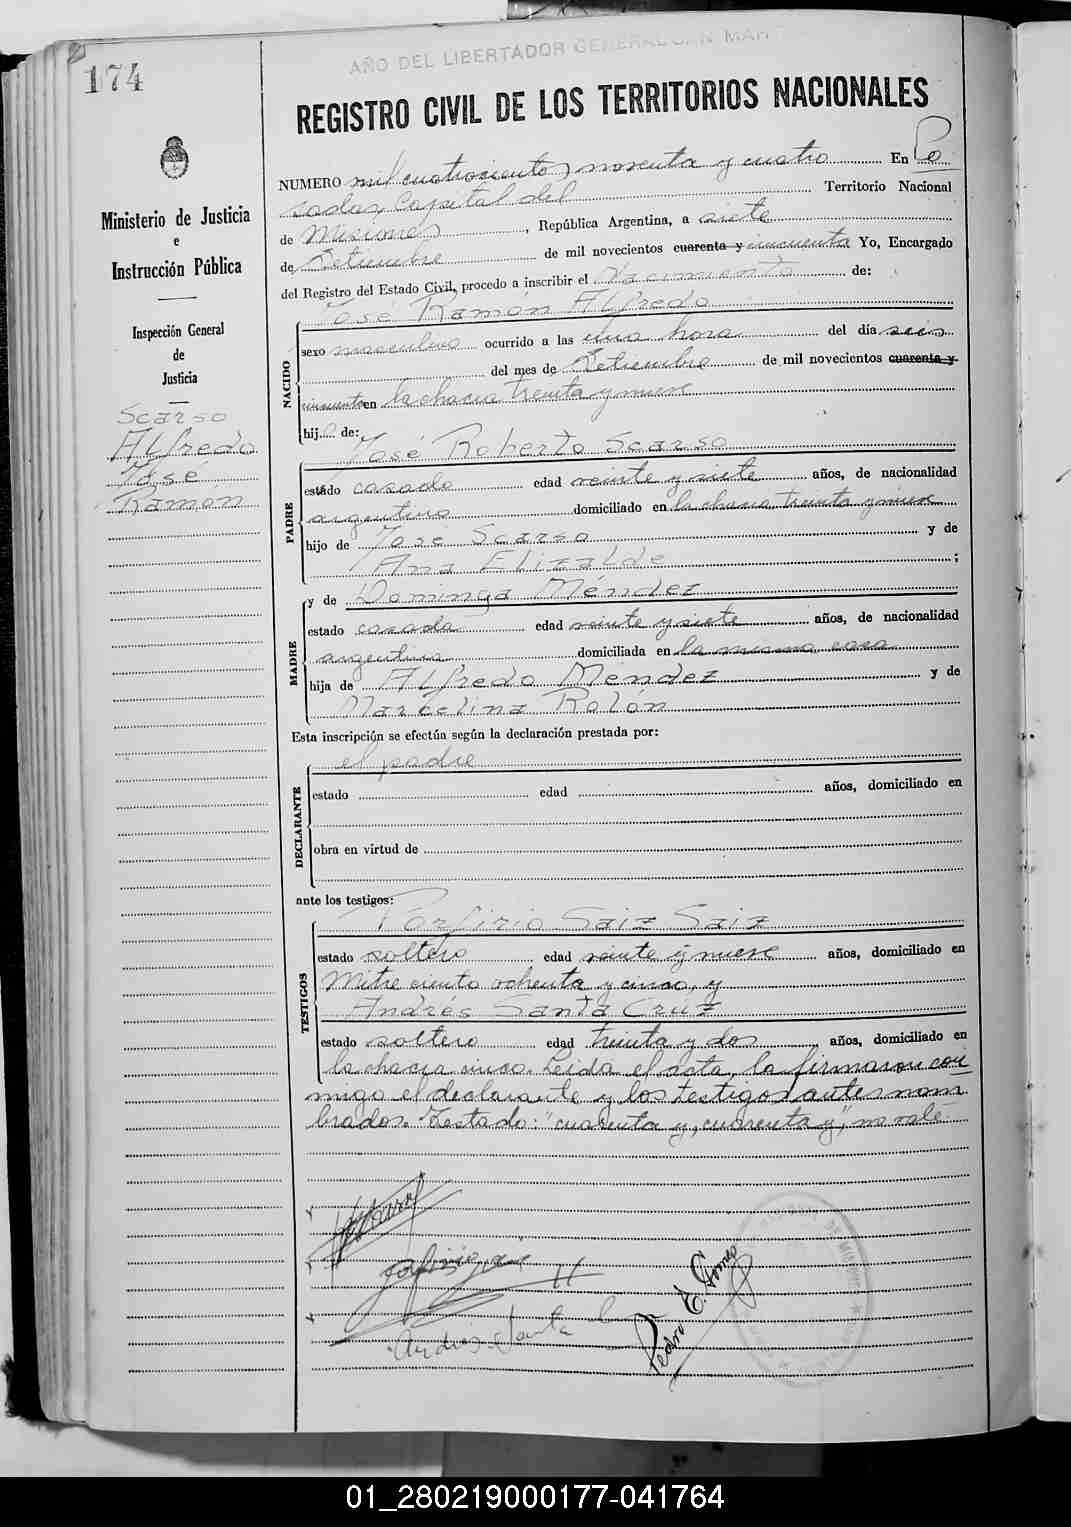 174
AÑO DEL LIBERTADOR GENERAL SAN MART
REGISTRO CIVIL DE LOS TERRITORIOS NACIONALES
Ministerio de Justicia
e
Instrucción Pública
Inspección General
de
Justicia
Scarso
Alfredo
José
Ramón
NUMERO mil cuatrocientos noventa y cuatro En Po
sadas, Capital del Territorio Nacional
de Misiones, República Argentina, a siete
de Setiembre de mil novecientos cuarenta y cincuenta Yo, Encargado
del Registro del Estado Civil, procedo a inscribir el Nacimiento de:
José Ramón Alfredo
NACIDO
sexo masculino ocurrido a las una hora del día seis
del mes de Setiembre de mil novecientos cuarenta y
cincuenta en la chacra treinta y nueve
hijo de:
José Roberto Scarso
PADRE
estado casado edad veinte y siete años, de nacionalidad
argentino domiciliado en la chacra treinta y nueve
hijo de José Scarso y de
Ana Elizalde ;
y de Dominga Méndez
MADRE
estado casada edad veinte y siete años, de nacionalidad
argentina domiciliada en la misma casa
hija de Alfredo Méndez y de
Marcelina Rolón
Esta inscripción se efectúa según la declaración prestada por:
el padre
DECLARANTE
estado edad años, domiciliado en
obra en virtud de
ante los testigos:
Porfirio Saiz Saiz
TESTIGOS
estado soltero edad veinte y nueve años, domiciliado en
Mitre ciento ochenta y cinco, y
Andrés Santa Cruz
estado soltero edad treinta y dos años, domiciliado en
la chacra cinco. Leida el acta, la firmaron con
migo el declarante y los testigos antes nom
brados. Testado: "cuarenta y, cuarenta y", no vale
Andrés Santa
Pedro E. Gomez
01_280219000177-041764